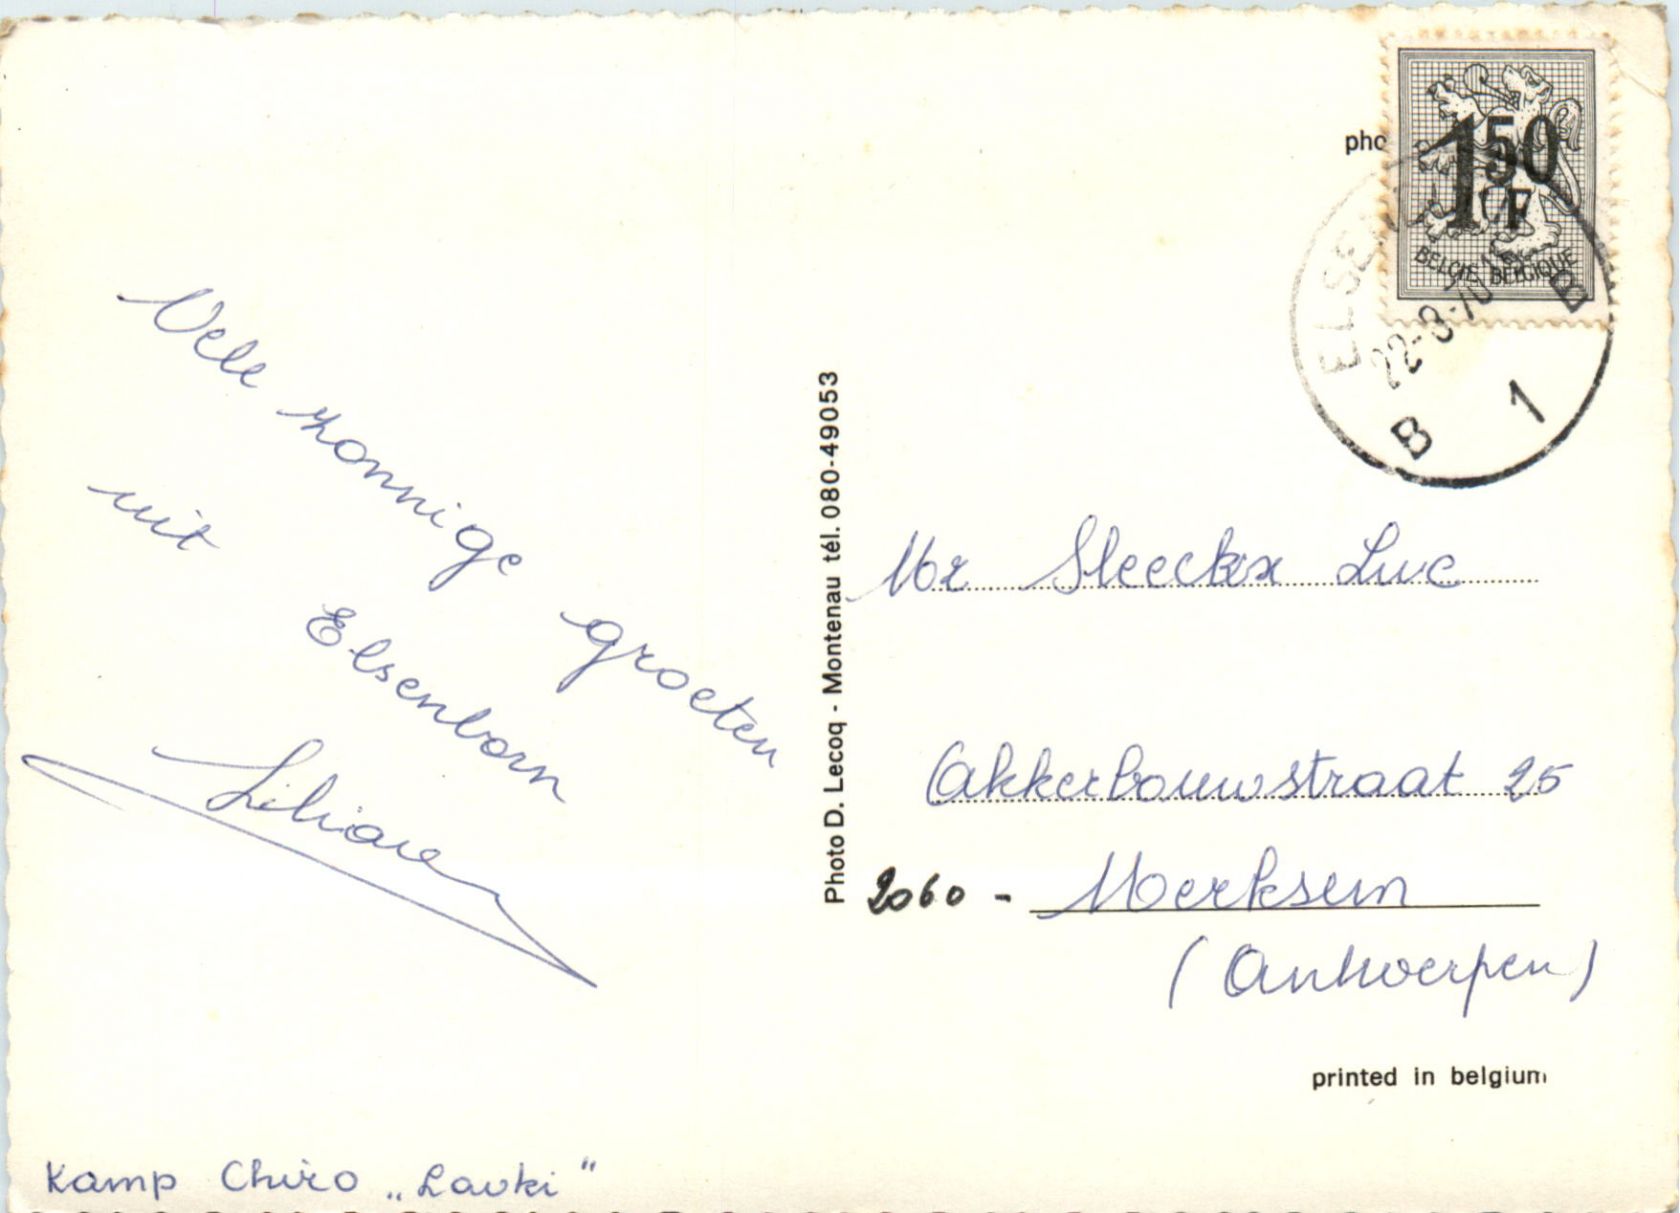 Vele zonnige groeten
uit Elsenborn
Liliane
Kamp Chiro „Lavki"
Photo D. Lecoq - Montenau tél. 080-49053
pho
1 50 F
BELGIË BELGIQUE
ELSEN
22-8-70
B 1 B
Mr Sleeckx Luc
Akkerbouwstraat 25
2060 - Merksem
(Antwerpen)
printed in belgium